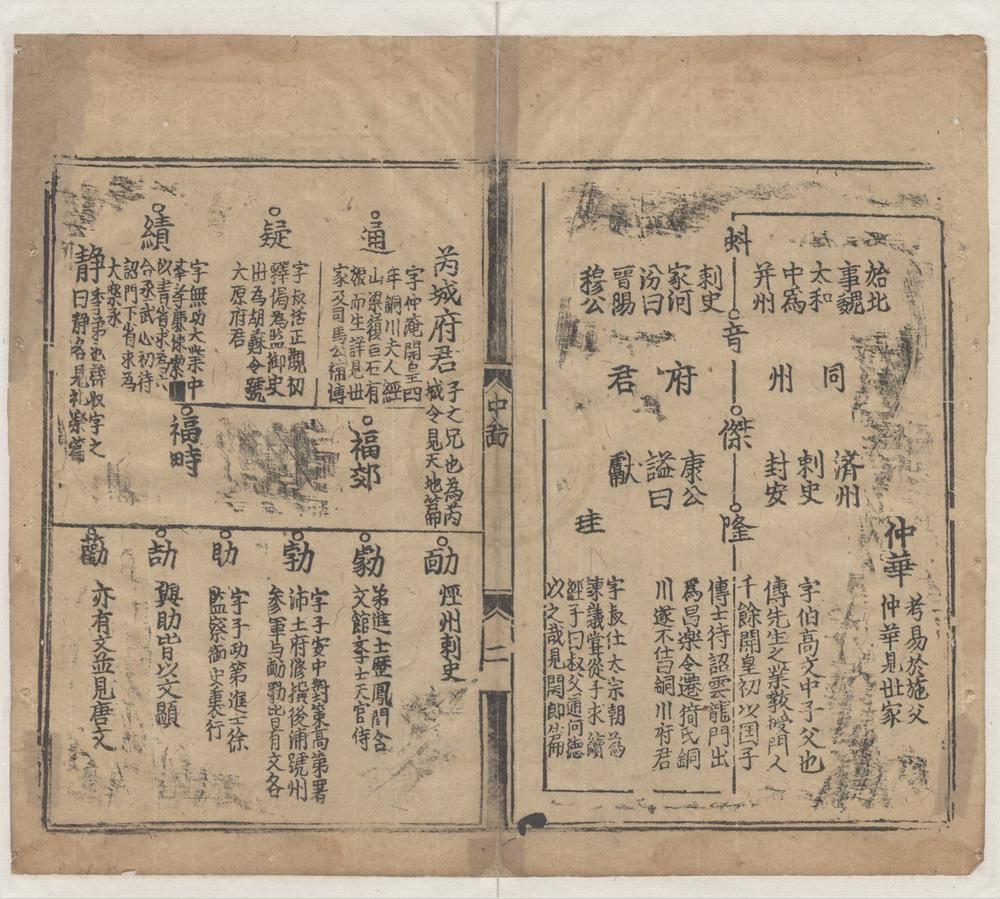 仲華
考易於施父
仲華見世家
蚪
始北
事魏
太和
中為
并州
刺史
家河
汾曰
晉陽
穆公
彥
同
州
府
君
傑
済州
刺史
封安
康公
謚曰
獻
隆
字伯高文中子父也
傳先生之業教授門人
千餘開皇初以国子
博士待詔雲龍門出
為昌楽令遷猗氏銅
川遂不仕曰銅川府君
珪
字長仕太宗朝為
諫議嘗從子求續
經子曰叔父通何徳
以之哉見関郎篇
中
二
芮城府君
子之兄也為芮
城令見天地篇
通
字仲淹開皇四
年銅川夫人經
山梁復巨石有
娠而生詳見世
家及司馬公補傳
福郊
福畤
疑
字叔恬正觀初
釋褐為監御史
出為胡蘇令號
大原府君
績
字無功大業中
孝廉
以
丞武心初待
詔門下省求為
大楽丞
静
季弟也
曰静名見礼楽篇
勔
烴州刺史
勮
弟進士歴鳳閣舍
文館孝士天官侍
勃
字子安中對策高第署
沛王府修撰後浦號州
参軍与勔勮皆有文各
助
字子功第進士徐
監察御史裏行
劼
與助皆以文顯
勸
亦有文並見唐文